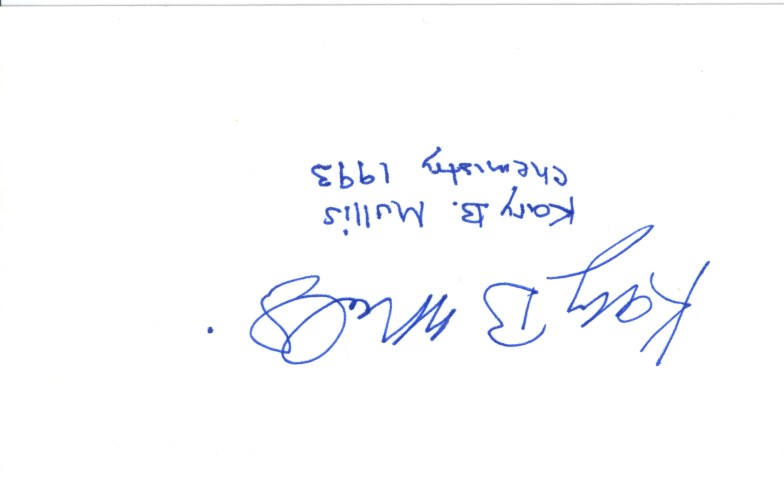 Kary B Mullis.
Kary B. Mullis
Chemistry 1993